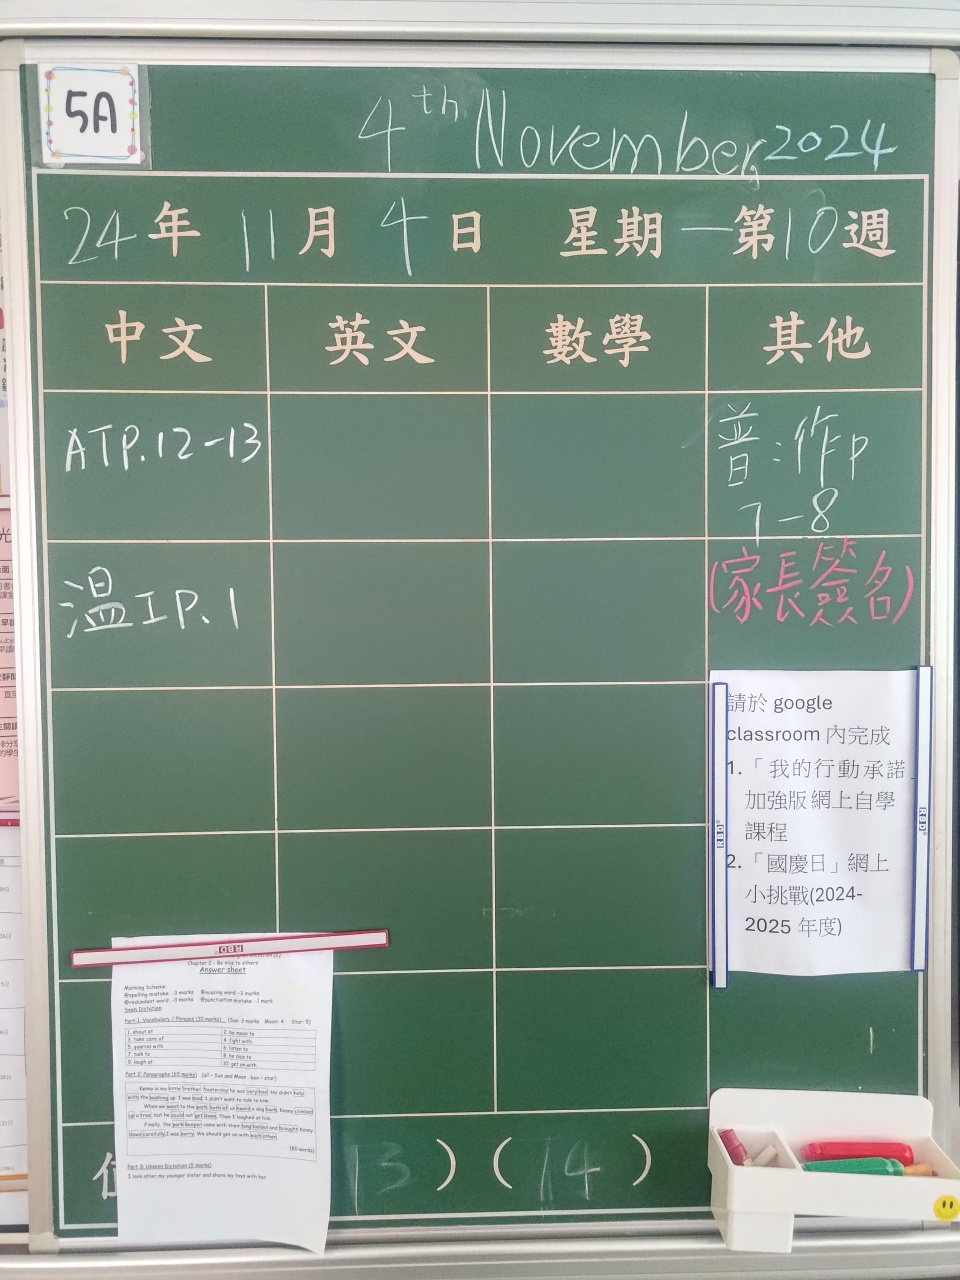 5A
4th November 2024
24年 11月 4日 星期一 第10週
中文 英文 數學 其他
ATP.12-13
普:作P
7-8
溫工P.1
(家長簽名)
請於 google
classroom 內完成
1.「我的行動承諾」
加強版網上自學
課程
2.「國慶日」網上
小挑戰(2024-
2025 年度)
RBD
RBD
RBD
Chapter 2 - Be nice to others
Answer sheet
Marking Scheme:
spelling mistake: -3 marks missing word: -3 marks
redundant word: -3 marks punctuation mistake: -1 mark
Seen Dictation
Part 1: Vocabulary / Phrases (30 marks) (Sun: 3 marks Moon: 4 Star: 5)
1. shout at 2. be mean to
3. take care of 4. fight with
5. quarrel with 6. listen to
7. talk to 8. be nice to
9. laugh at 10. get on with
Part 2: Paragraphs (65 marks) (all - Sun and Moon; box - star)
Kenny is my little brother. Yesterday he was very bad. He didn't help
with the washing up. I was mad. I didn't want to talk to him.
When we went to the park, both of us heard a dog bark. Kenny climbed
up a tree, but he could not get down. Then I laughed at him.
Finally, the park keeper came with their long ladder and brought Kenny
down carefully. I was sorry. We should get on with each other.
(80 words)
Part 3: Unseen Dictation (5 marks)
I look after my younger sister and share my toys with her.
13 ) ( 14 )